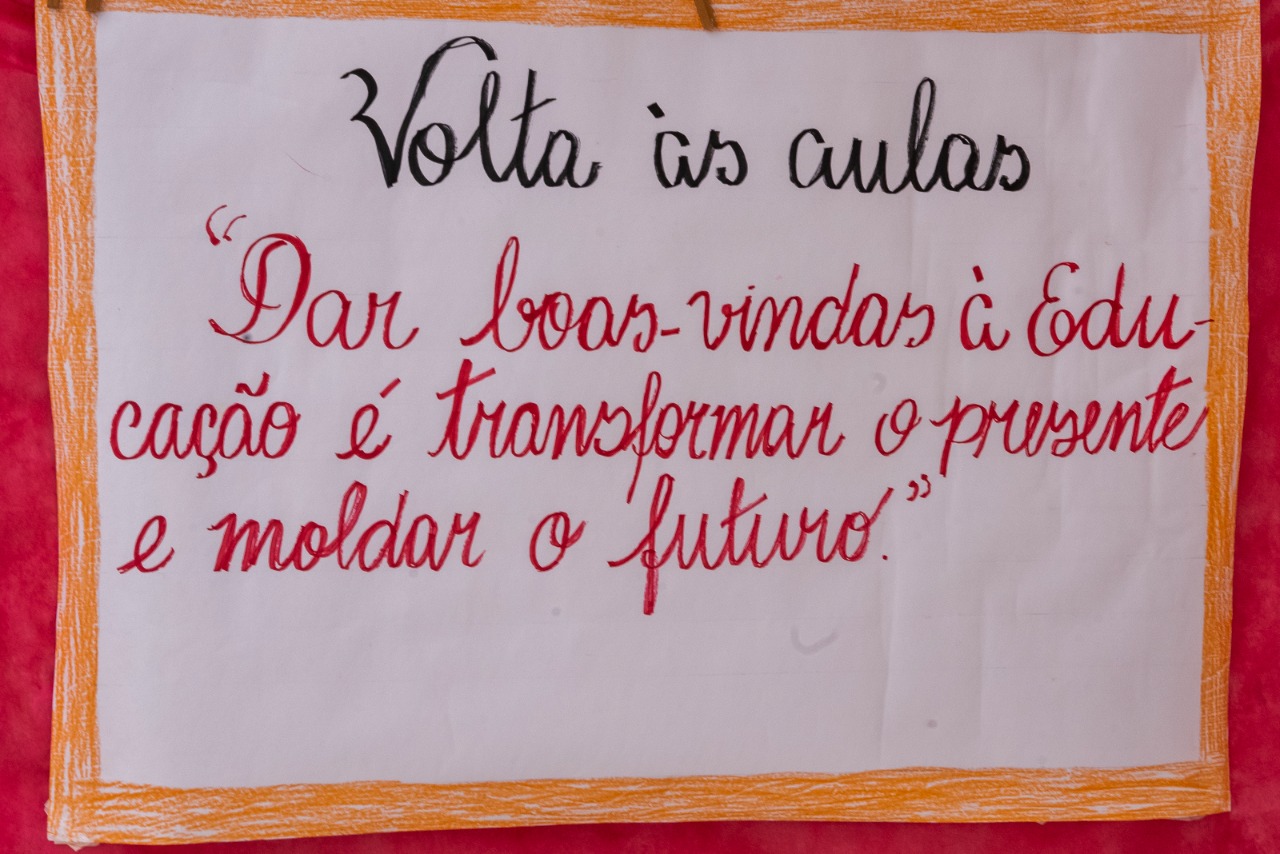 Volta às aulas
“Dar boas-vindas à Edu-
cação é transformar o presente
e moldar o futuro.”